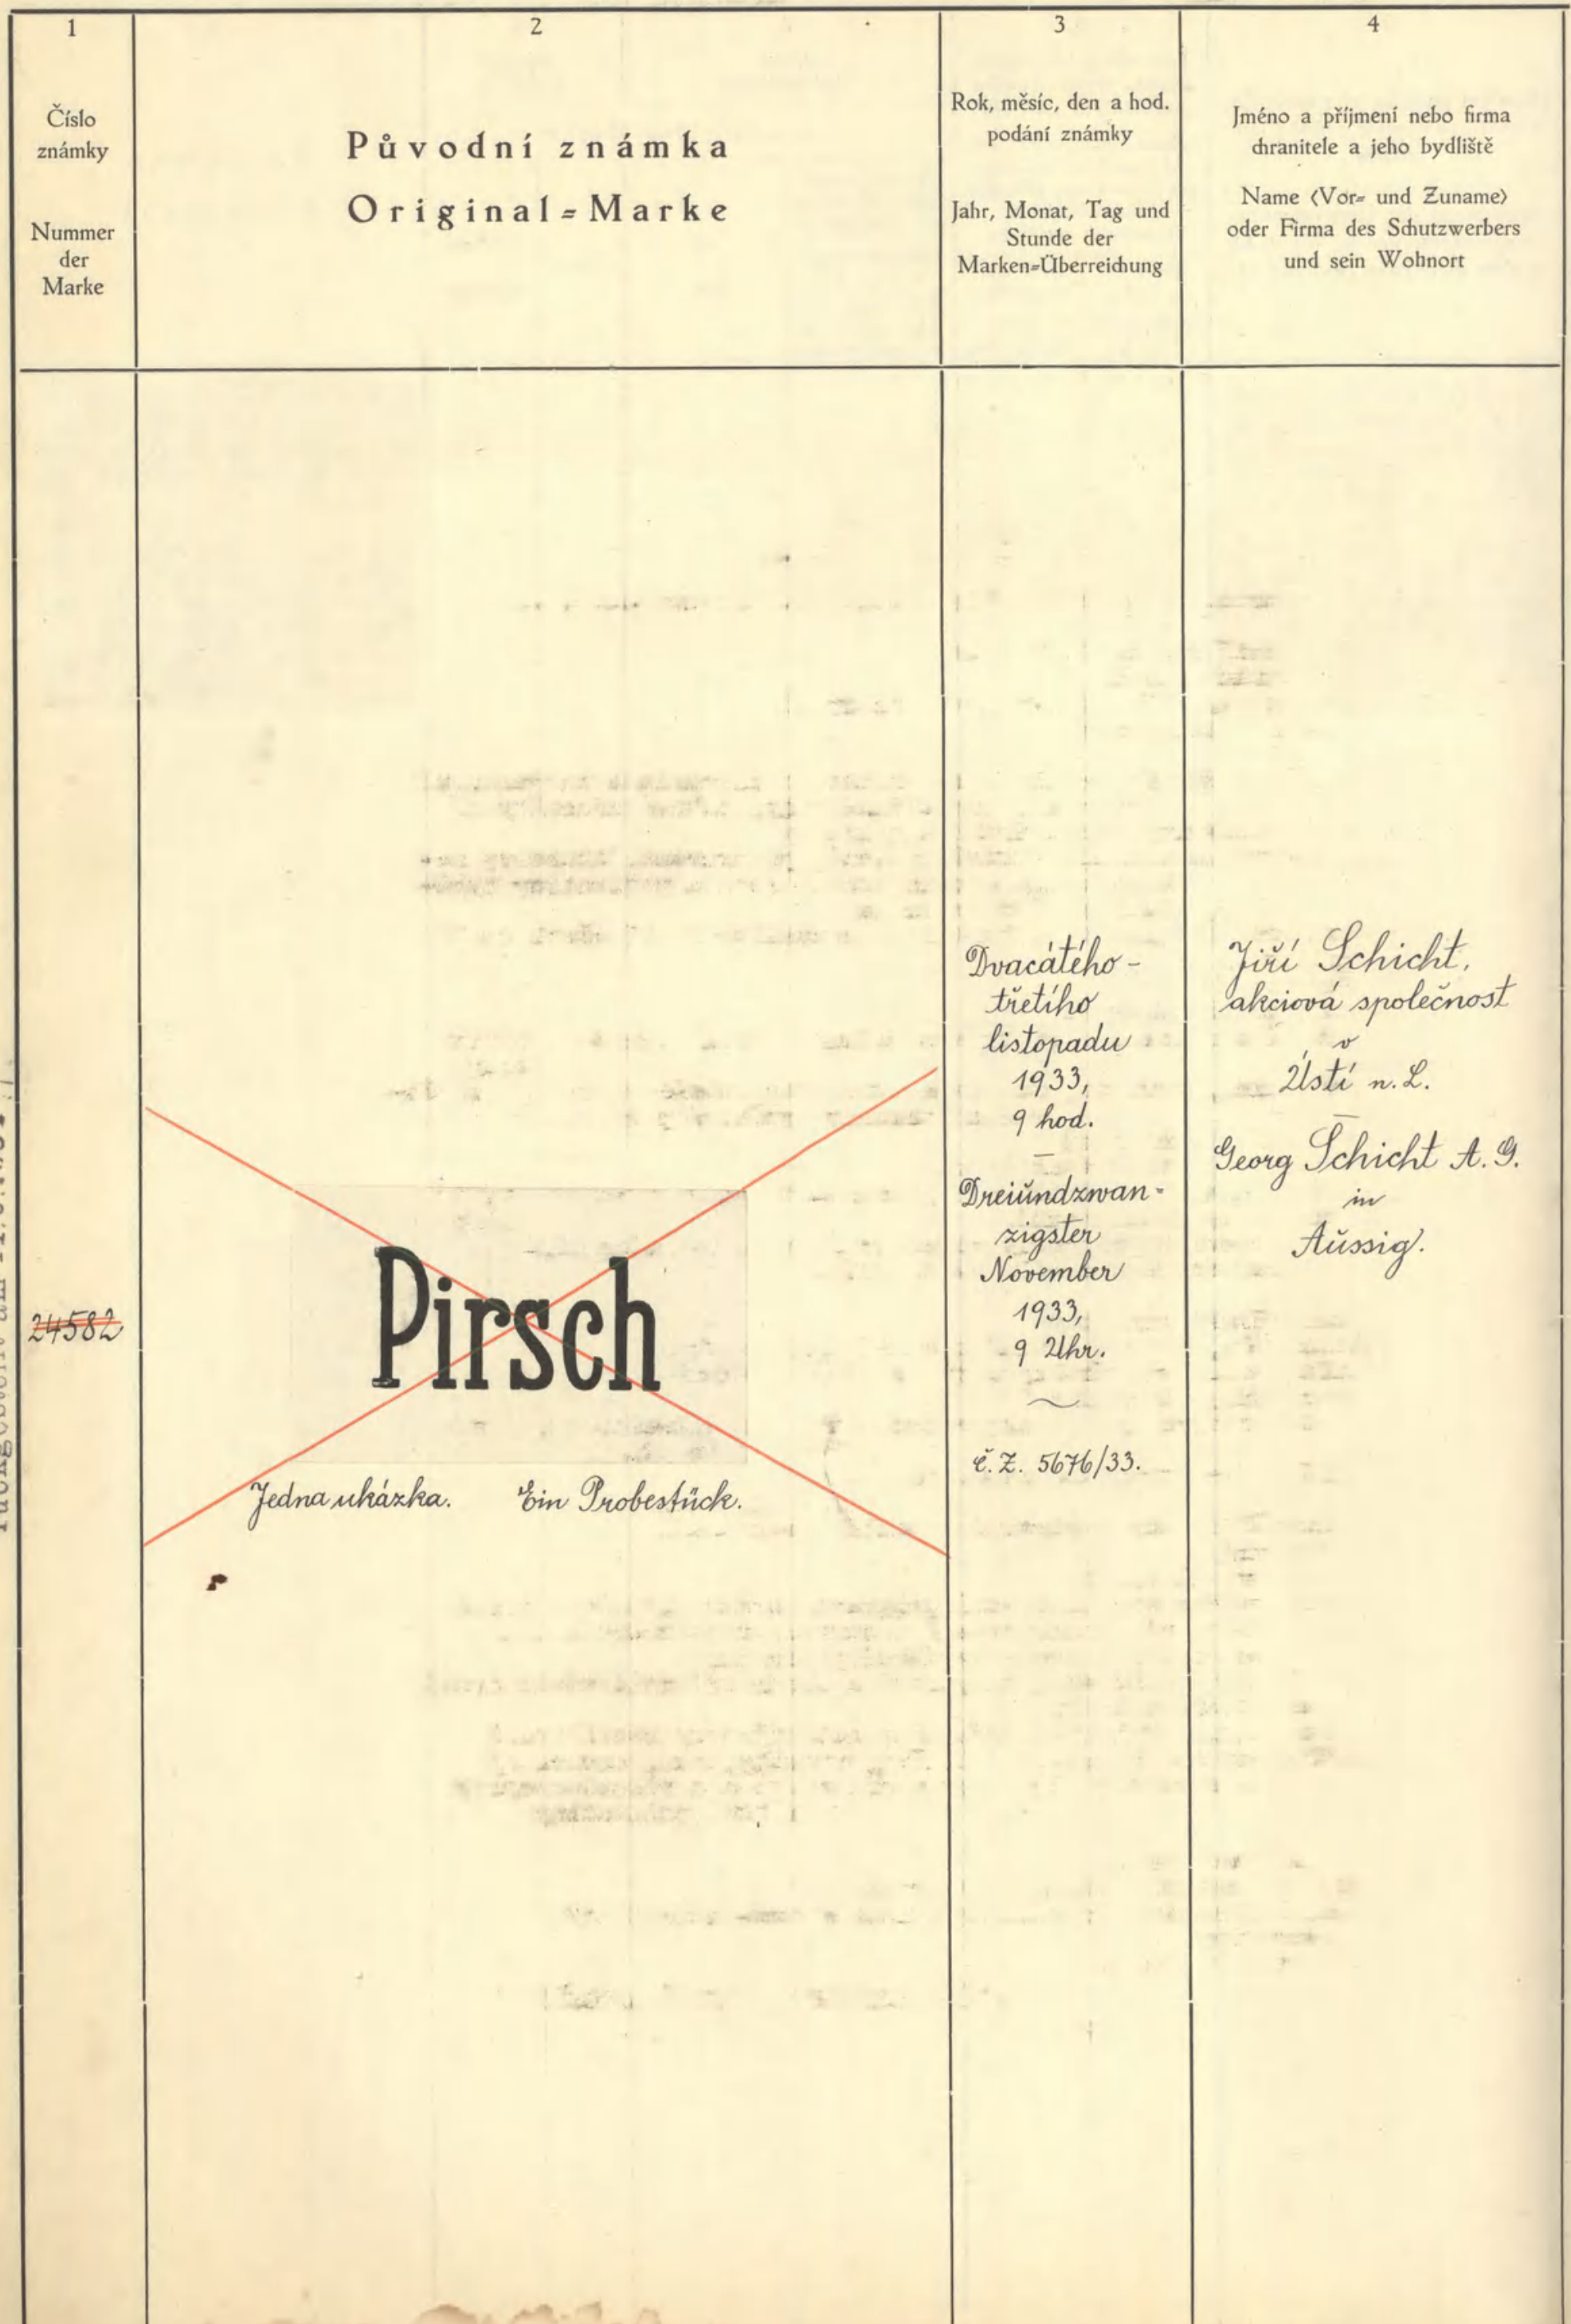 1
Číslo
známky
Nummer
der
Marke
2
Původní známka
Original=Marke
3
Rok, měsíc, den a hod.
podání známky
Jahr, Monat, Tag und
Stunde der
Marken=Überreichung
4
Jméno a příjmení nebo firma
chranitele a jeho bydliště
Name (Vor= und Zuname)
oder Firma des Schutzwerbers
und sein Wohnort
24582
Pirsch
Jedna ukázka. Ein Probestück.
Dvacátého-
třetího
listopadu
1933,
9 hod.
—
Dreiundzwan-
zigster
November
1933,
9 Uhr.
č. Z. 5676/33.
Jiří Schicht,
akciová společnost
v
Ústí n. L.
—
Georg Schicht A. G.
in
Aussig.